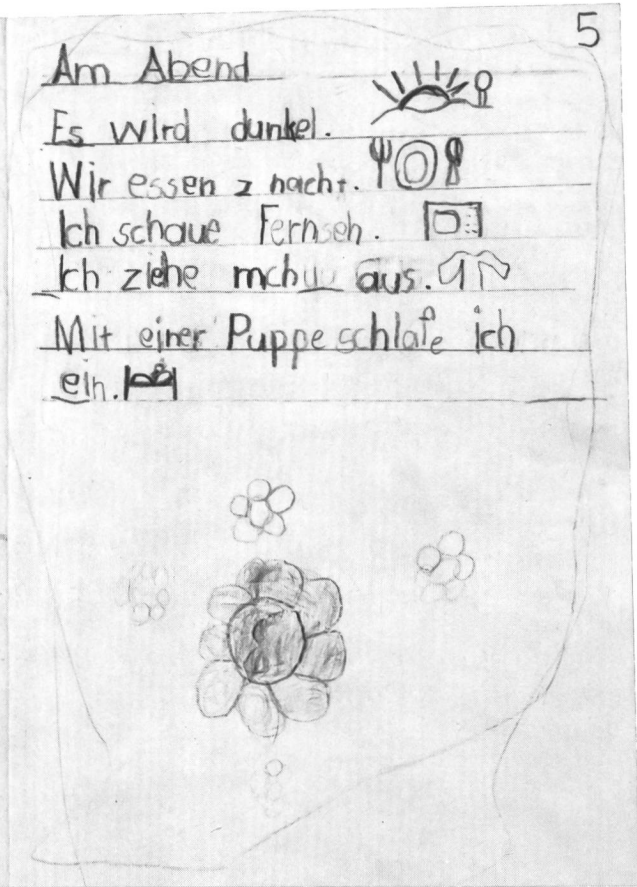 5
Am Abend
Es wird dunkel.
Wir essen z nacht.
Ich schaue Fernseh.
Ich ziehe aus.
Mit einer Puppe schlafe ich
ein.